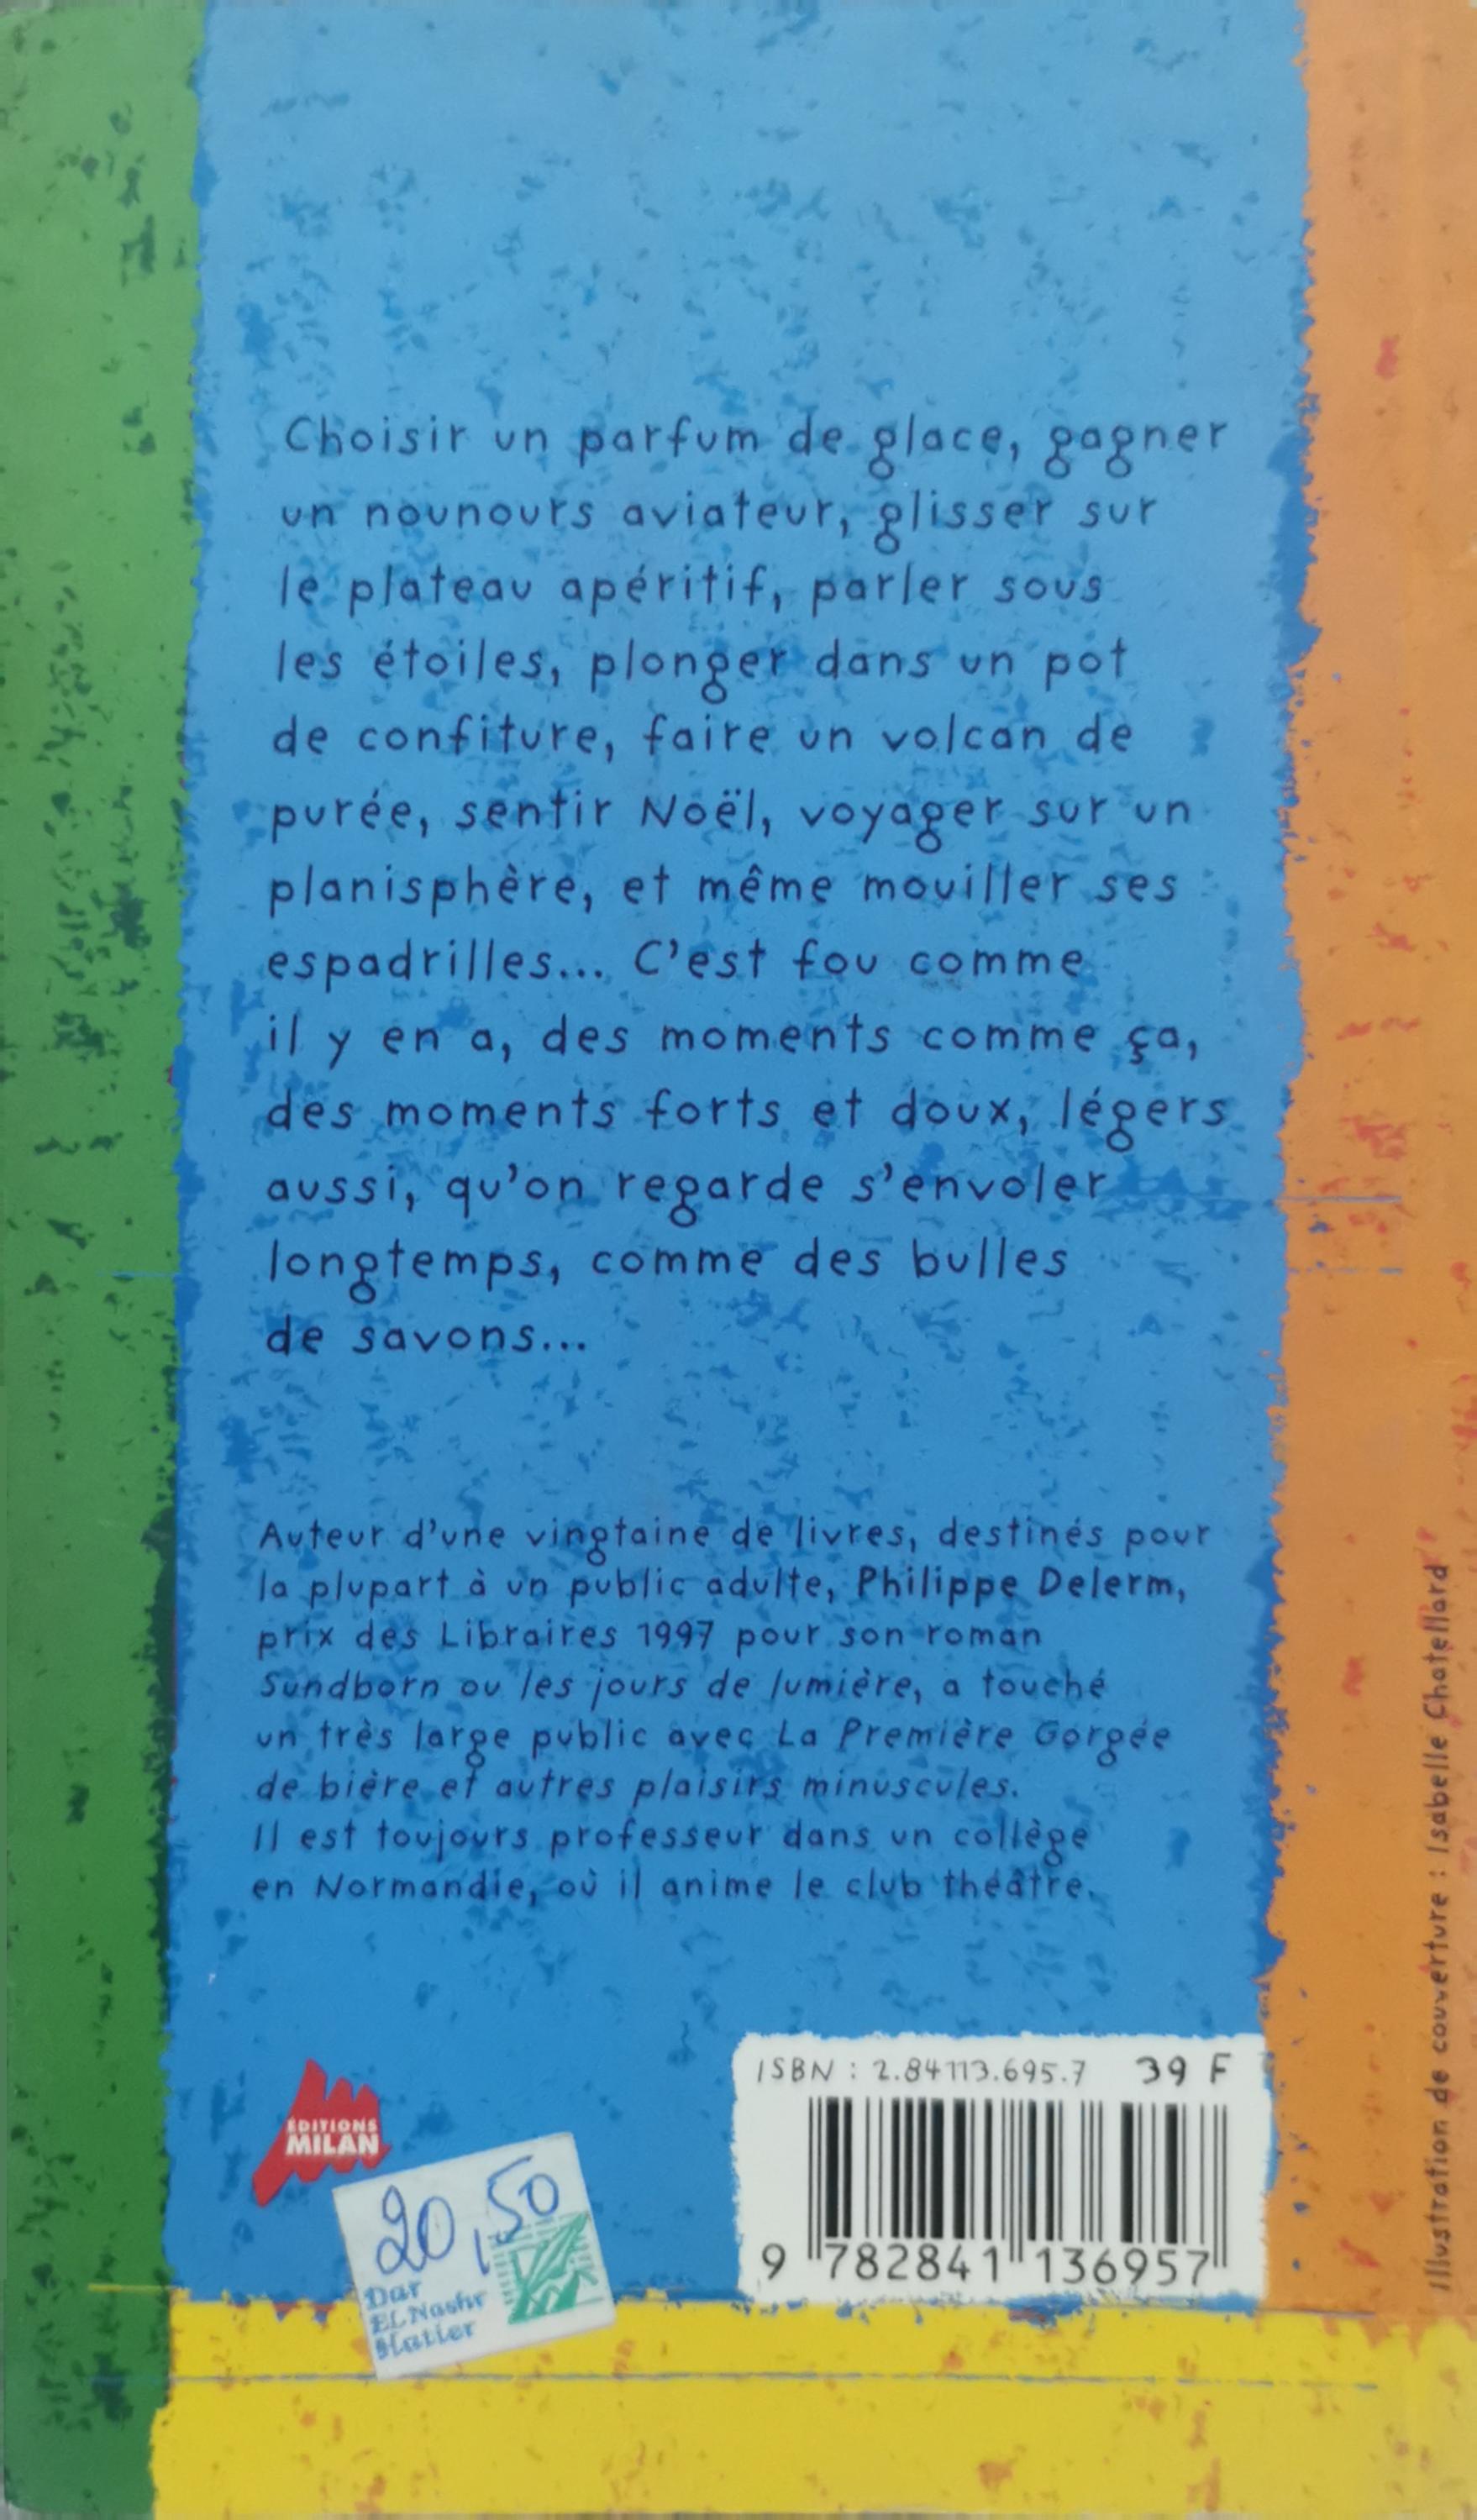 Choisir un parfum de glace, gagner
un nounours aviateur, glisser sur
le plateau apéritif, parler sous
les étoiles, plonger dans un pot
de confiture, faire un volcan de
purée, sentir Noël, voyager sur un
planisphère, et même mouiller ses
espadrilles... C'est fou comme
il y en a, des moments comme ça,
des moments forts et doux, légers
aussi, qu'on regarde s'envoler
longtemps, comme des bulles
de savons...
Auteur d'une vingtaine de livres, destinés pour
la plupart à un public adulte, Philippe Delerm,
prix des Libraires 1997 pour son roman
Sundborn ou les jours de lumière, a touché
un très large public avec La Première Gorgée
de bière et autres plaisirs minuscules.
Il est toujours professeur dans un collège
en Normandie, où il anime le club théâtre.
ÉDITIONS
MILAN
20,50
Dar
ELNashr
Hatier
ISBN : 2.84113.695.7 39 F
9 782841 136957
Illustration de couverture : Isabelle Chatellard